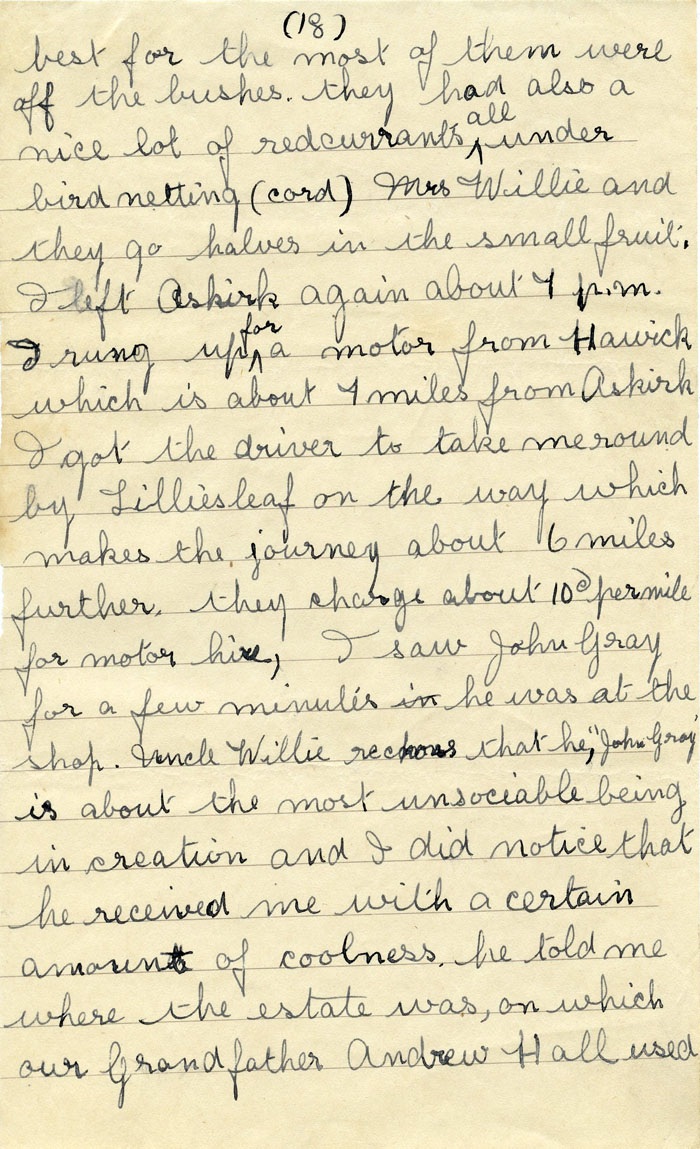 (18)
best for the most of them were
off the bushes. they had also a
nice lot of redcurrants all under
bird netting (cord) Mrs Willie and
they go halves in the small fruit.
I left Askirk again about 7 p.m.
I rung up for a motor from Hawick
which is about 7 miles from Askirk
I got the driver to take me round
by Lilliesleaf on the way which
makes the journey about 6 miles
further. they charge about 10d per mile
for motor hire, I saw John Gray
for a few minutes in he was at the
shop. Uncle Willie reckons that he, "John Gray"
is about the most unsociable being
in creation and I did notice that
he received me with a certain
amount of coolness. he told me
where the estate was, on which
our Grandfather Andrew Hall used